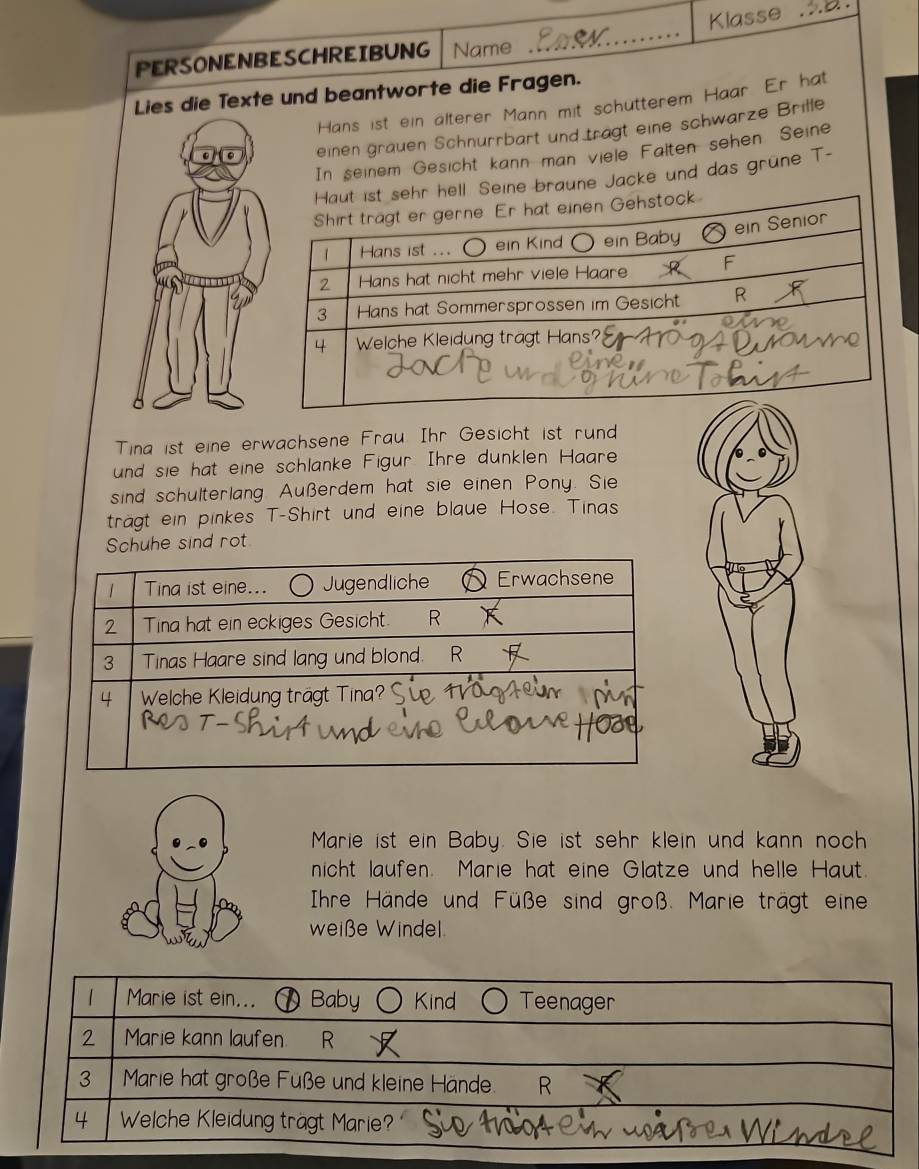 PERSONENBESCHREIBUNG Name Klasse
Lies die Texte und beantworte die Fragen.
Hans ist ein älterer Mann mit schütterem Haar. Er hat
einen grauen Schnurrbart und trägt eine schwarze Brille.
In seinem Gesicht kann man viele Falten sehen. Seine
Haut ist sehr hell. Seine braune Jacke und das grüne T-
Shirt trägt er gerne. Er hat einen Gehstock.
1 Hans ist ... ein Kind ein Baby ein Senior
2 Hans hat nicht mehr viele Haare. R F
3 Hans hat Sommersprossen im Gesicht R F
eine
4 Welche Kleidung trägt Hans? Er trägt braune
eine
Jacke und grüne Tshirt
Tina ist eine erwachsene Frau. Ihr Gesicht ist rund
und sie hat eine schlanke Figur. Ihre dunklen Haare
sind schulterlang. Außerdem hat sie einen Pony. Sie
trägt ein pinkes T-Shirt und eine blaue Hose. Tinas
Schuhe sind rot.
1 Tina ist eine... Jugendliche Erwachsene
2 Tina hat ein eckiges Gesicht. R F
3 Tinas Haare sind lang und blond. R F
4 Welche Kleidung trägt Tina? Sie trägt ein pin
kes T-Shirt und eine blaue Hose
Marie ist ein Baby. Sie ist sehr klein und kann noch
nicht laufen. Marie hat eine Glatze und helle Haut.
Ihre Hände und Füße sind groß. Marie trägt eine
weiße Windel.
1 Marie ist ein... Baby Kind Teenager
2 Marie kann laufen. R F
3 Marie hat große Füße und kleine Hände. R F
4 Welche Kleidung trägt Marie? Sie trägt ein Windel